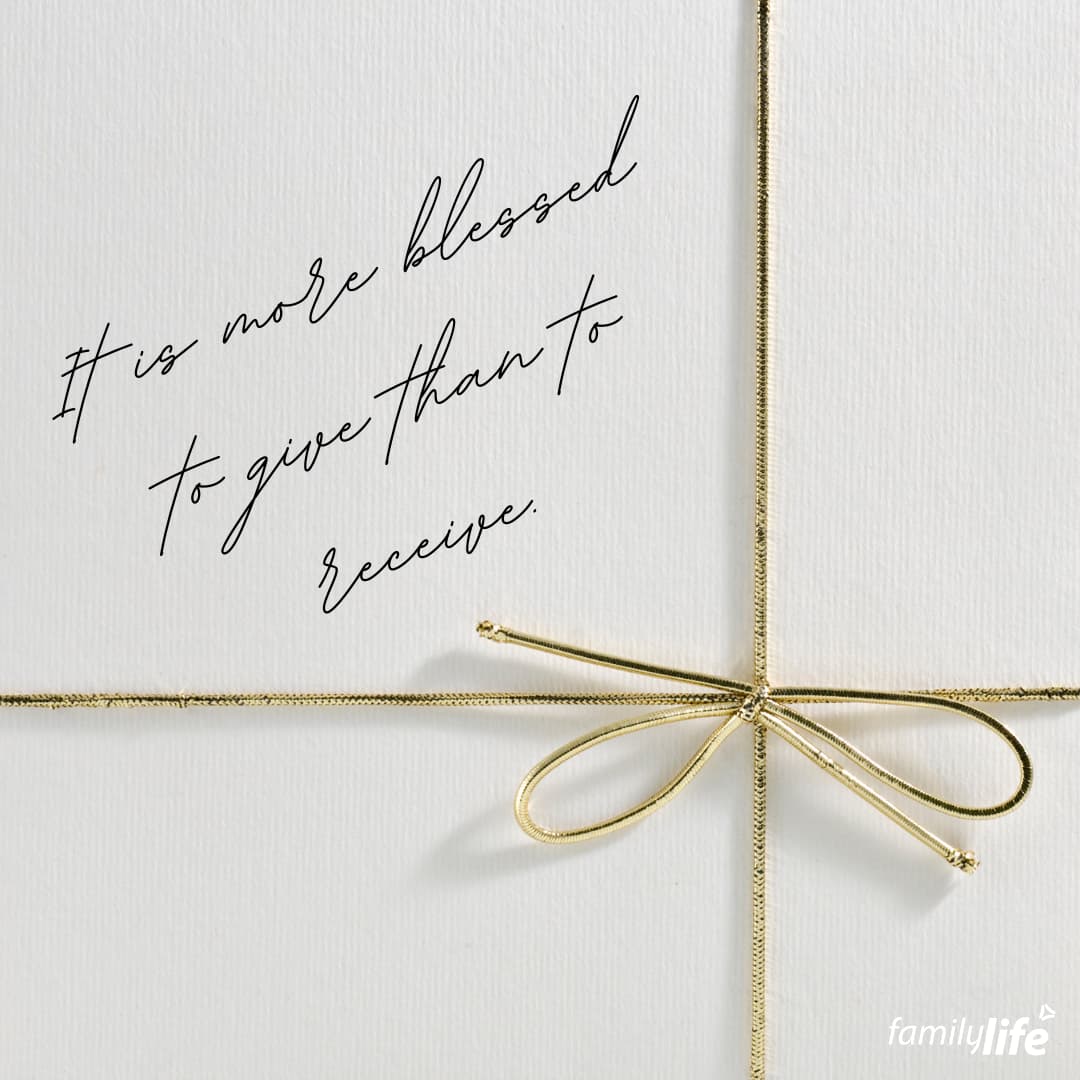 It is more blessed
to give than to
receive.
familylife